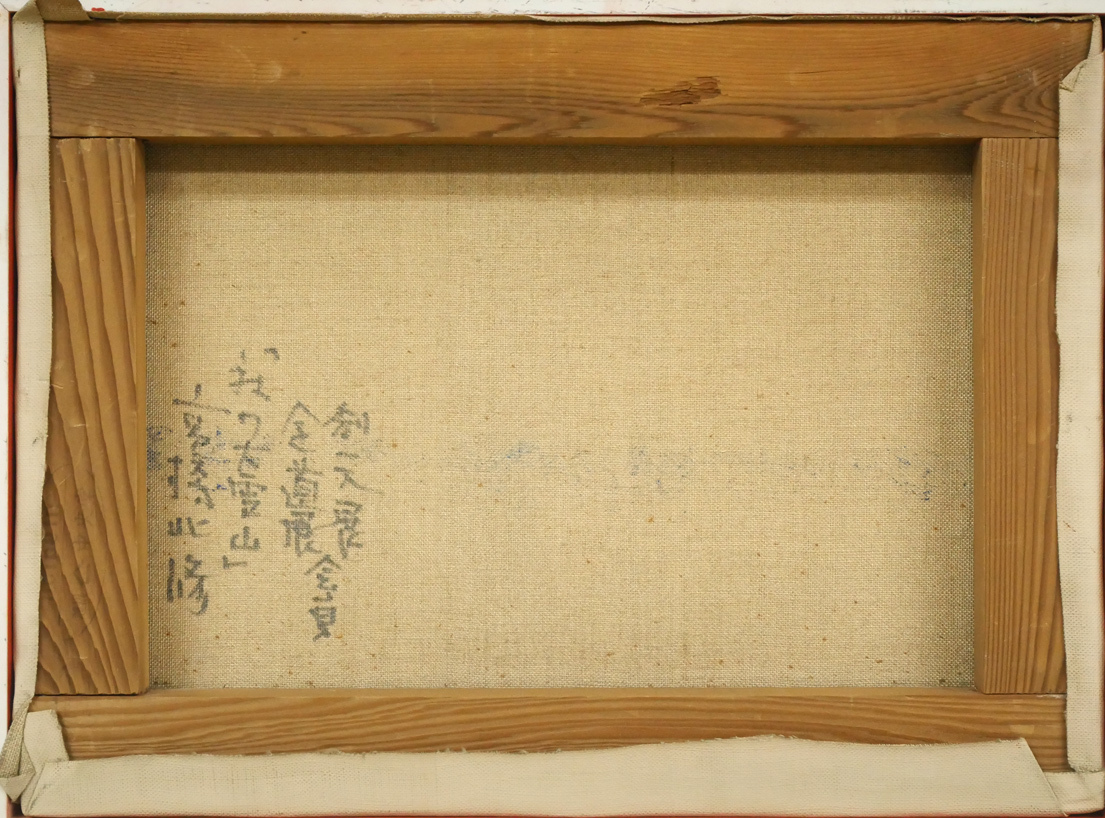 創元展
全道展
会員
「の大雪山」
高橋北修